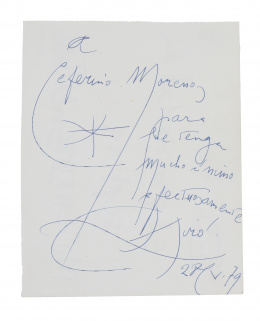 A
Ceferino Moreno,
para
que tenga
mucho ánimo
afectuosamente
Miró.
28/V.79